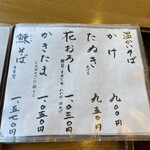 温かいそば
かけ 九〇〇円
たぬき 九五〇円
花おろし 一、〇三〇円
かきたま 一、〇五〇円
鰊そば 一、五七〇円